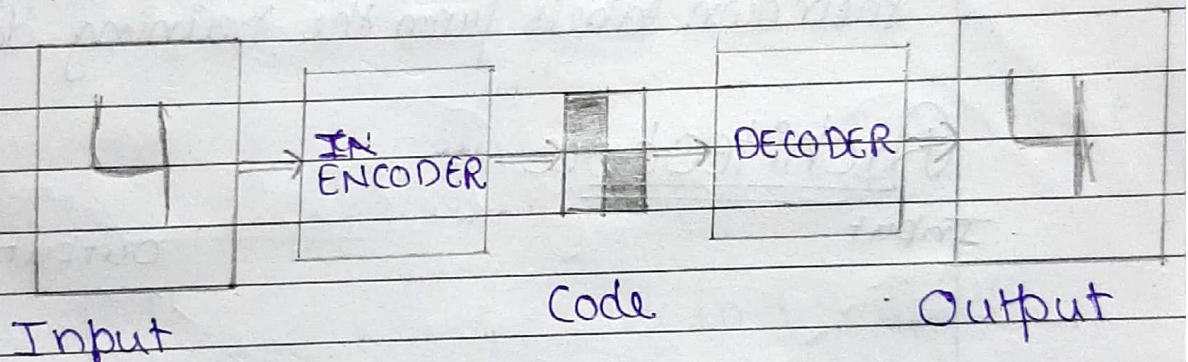 4
IN
ENCODER
DECODER
4
Input
Code
Output